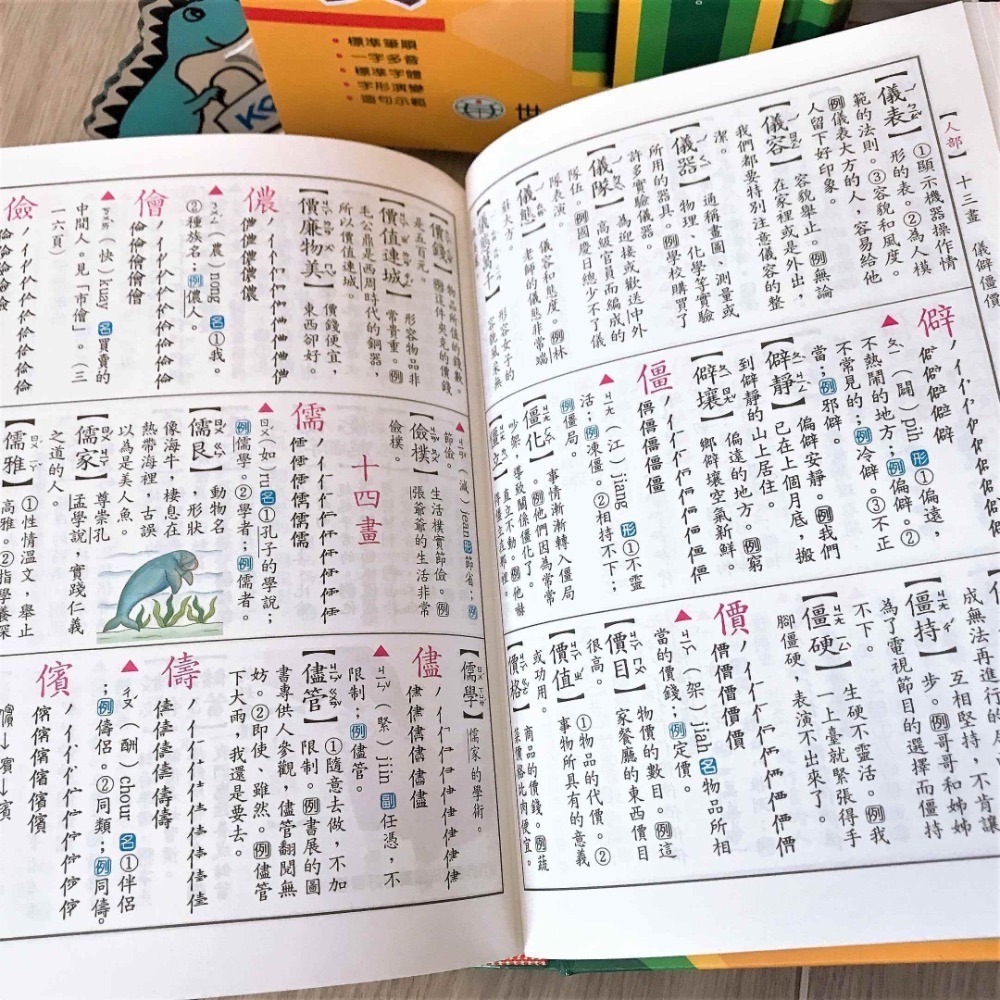 • 標準筆順
• 一字多音
• 標準字體
• 字形演變
• 造句示範
世
【人部】 十三畫 儀僻僵價
【儀表】①顯示機器操作情
形的表。②為人模
範的法則。③容貌和風度
例儀表大方的人,容易給他
人留下好印象。
【儀容】容貌舉止。例無論
在家裡或是外出,
我們都要特別注意儀容的整
潔。
【儀器】通稱畫圖、測量或
物理、化學等實驗
所用的器具。例學校購買了
許多實驗儀器。
【儀隊】為迎接或歡送中外
高級官員而編成的
隊伍。例國慶日總少不了儀
隊表演。
【儀態】儀容和態度。例林
老師的儀態非常端
莊大方。
形容女子的
僻
▲ㄆㄧˋ(闢)pih 形①偏遠,
不熱鬧的地方;例偏僻。②
不常見的;例冷僻。③不正
當;例邪僻。
【僻靜】偏僻安靜。例我們
已在上個月底,搬
到僻靜的山上居住。
【僻壤】偏遠的地方。例窮
鄉僻壤空氣新鮮。
僵
▲ㄐㄧㄤ(江)jiang 形①不靈
活;例凍僵。②相持不下;
例僵局。
【僵化】事情漸漸轉入僵局
。例他們因為常常
吵架,導致關係僵化了。
【僵立】直立不動。例他嚇
得僵立在那裡。
成無法再進行的
【僵持】互相堅持,不肯讓
步。例哥哥和姊姊
為了電視節目的選擇而僵持
不下。
【僵硬】生硬不靈活。例我
一上臺就緊張得手
腳僵硬,表演不出來了。
價
▲ㄐㄧㄚˋ(架)jiah 名物品所相
當的價錢;例定價。
【價目】物價的數目。例這
家餐廳的東西價目
很高。
【價值】①物品的代價。②
事物所具有的意義
或功用。
【價格】商品的價錢。例蔬
菜價格比肉便宜。
【價錢】物品所值的錢數。
例這件夾克的價錢
是五百元。
【價值連城】形容物品非
常貴重。例
毛公鼎是西周時代的銅器,
所以價值連城。
【價廉物美】價錢便宜,
東西卻好。
儂
▲ㄋㄨㄥˊ(農)nong 名①我。
②種族名;例儂人。
儈
▲ㄎㄨㄞˋ(快)kuay 名買賣的
中間人。見「市儈」。(三
一六頁)
儉
▲ㄐㄧㄢˇ(減)jean 形節省;例
節儉。
【儉樸】生活樸實節儉。例
張爺爺的生活非常
儉樸。
十四畫
儒
▲ㄖㄨˊ(如)ru 名①孔子的學說;
例儒學。②學者;例儒者。
【儒艮】動物名,形狀
像海牛,棲息在
熱帶海裡,古誤
以為是美人魚。
【儒家】尊崇孔
孟學說,實踐仁義
之道的人。
【儒雅】①性情溫文,舉止
高雅。②指學養深
【儒學】儒家的學術。
儘
▲ㄐㄧㄣˇ(緊)jiin 副任憑,不
限制;例儘管。
【儘管】①隨意去做,不加
限制。例書展的圖
書專供人參觀,儘管翻閱無
妨。②即使、雖然。例儘管
下大雨,我還是要去。
儔
▲ㄔㄡˊ(酬)chour 名①伴侶
;例儔侶。②同類;例同儔。
儐